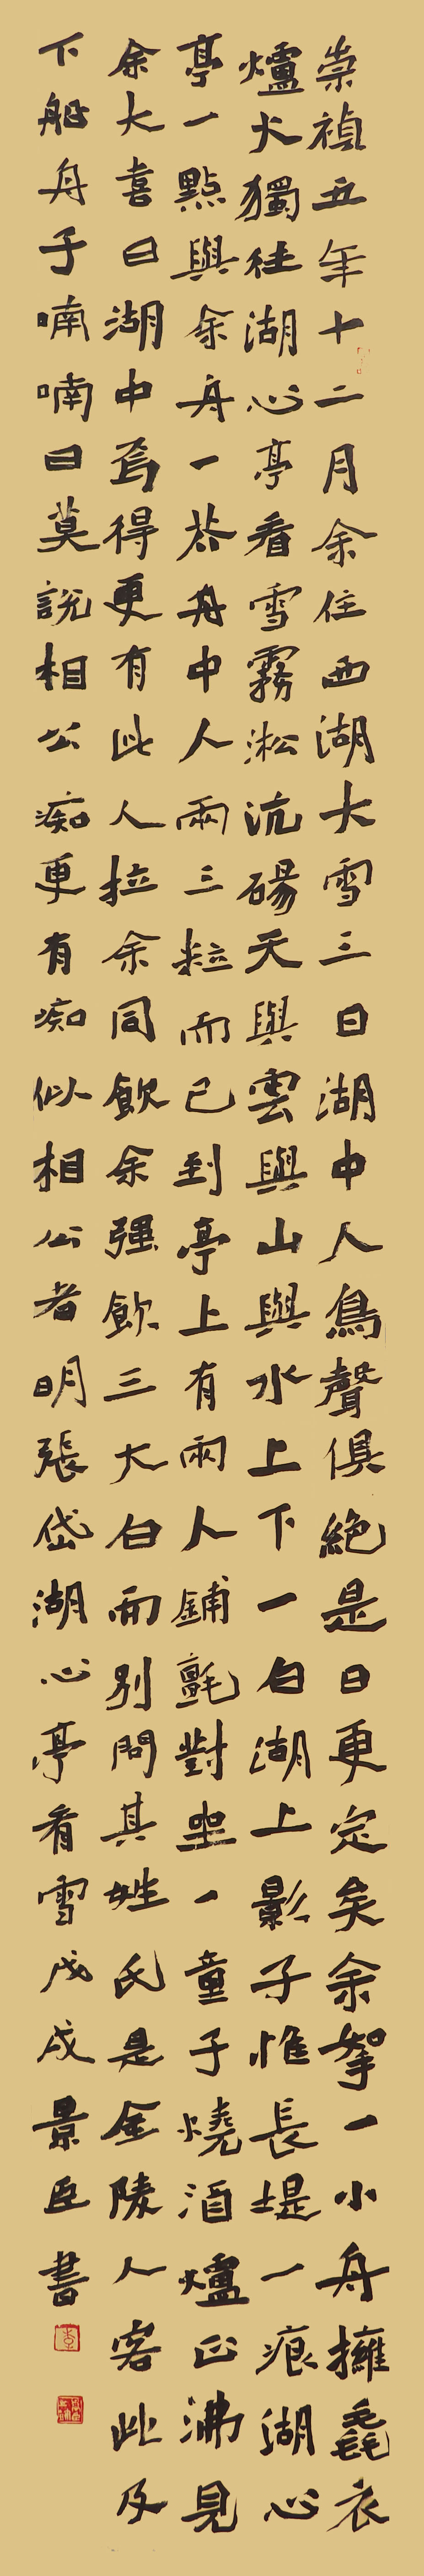 崇禎五年十二月余住西湖大雪三日湖中人鳥聲俱絕是日更定矣余拏一小舟擁毳衣
爐火獨往湖心亭看雪霧淞沆碭天與雲與山與水上下一白湖上影子惟長堤一痕湖心
亭一點與余舟一芥舟中人兩三粒而已到亭上有兩人鋪氈對坐一童子燒酒爐正沸見
余大喜曰湖中焉得更有此人拉余同飲余强飲三大白而別問其姓氏是金陵人客此及
下船舟子喃喃曰莫說相公痴更有痴似相公者明張岱湖心亭看雪戊戌景臣書